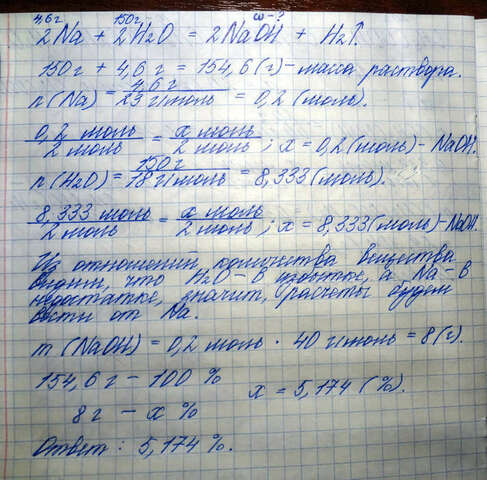 4,6 г 150 г ω - ?
2Na + 2H₂O = 2NaOH + H₂↑.
150 г + 4,6 г = 154,6 (г) - масса раствора.
n (Na) = 4,6 г / 23 г/моль = 0,2 (моль).
0,2 моль / 2 моль = x моль / 2 моль ; x = 0,2 (моль) - NaOH.
n (H₂O) = 150 г / 18 г/моль = 8,333 (моль).
8,333 моль / 2 моль = x моль / 2 моль ; x = 8,333 (моль) - NaOH.
Из отношений количества вещества
видим, что H₂O - в избытке, а Na - в
недостатке, значит, расчеты будем
вести от Na.
m (NaOH) = 0,2 моль · 40 г/моль = 8 (г).
154,6 г - 100 %
8 г - x % x = 5,174 (%).
Ответ: 5,174 %.